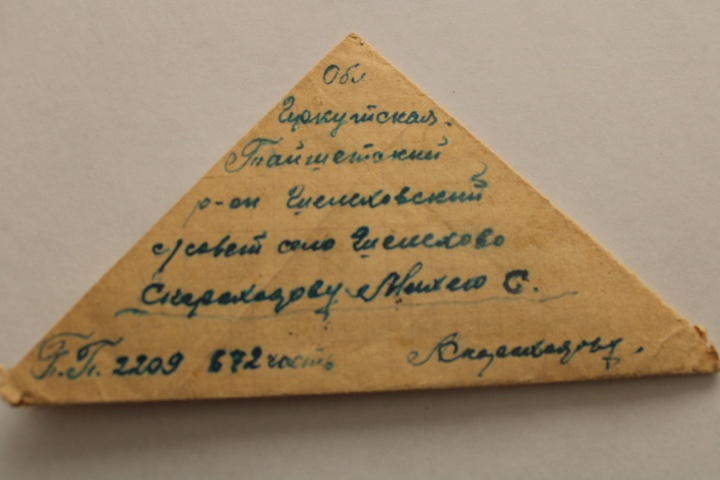 Обл
Иркутская
Тайшетский
р-он Шелеховский
с/совет село Шелехово
Скороходову Михею С.
П.П. 2209 672 часть